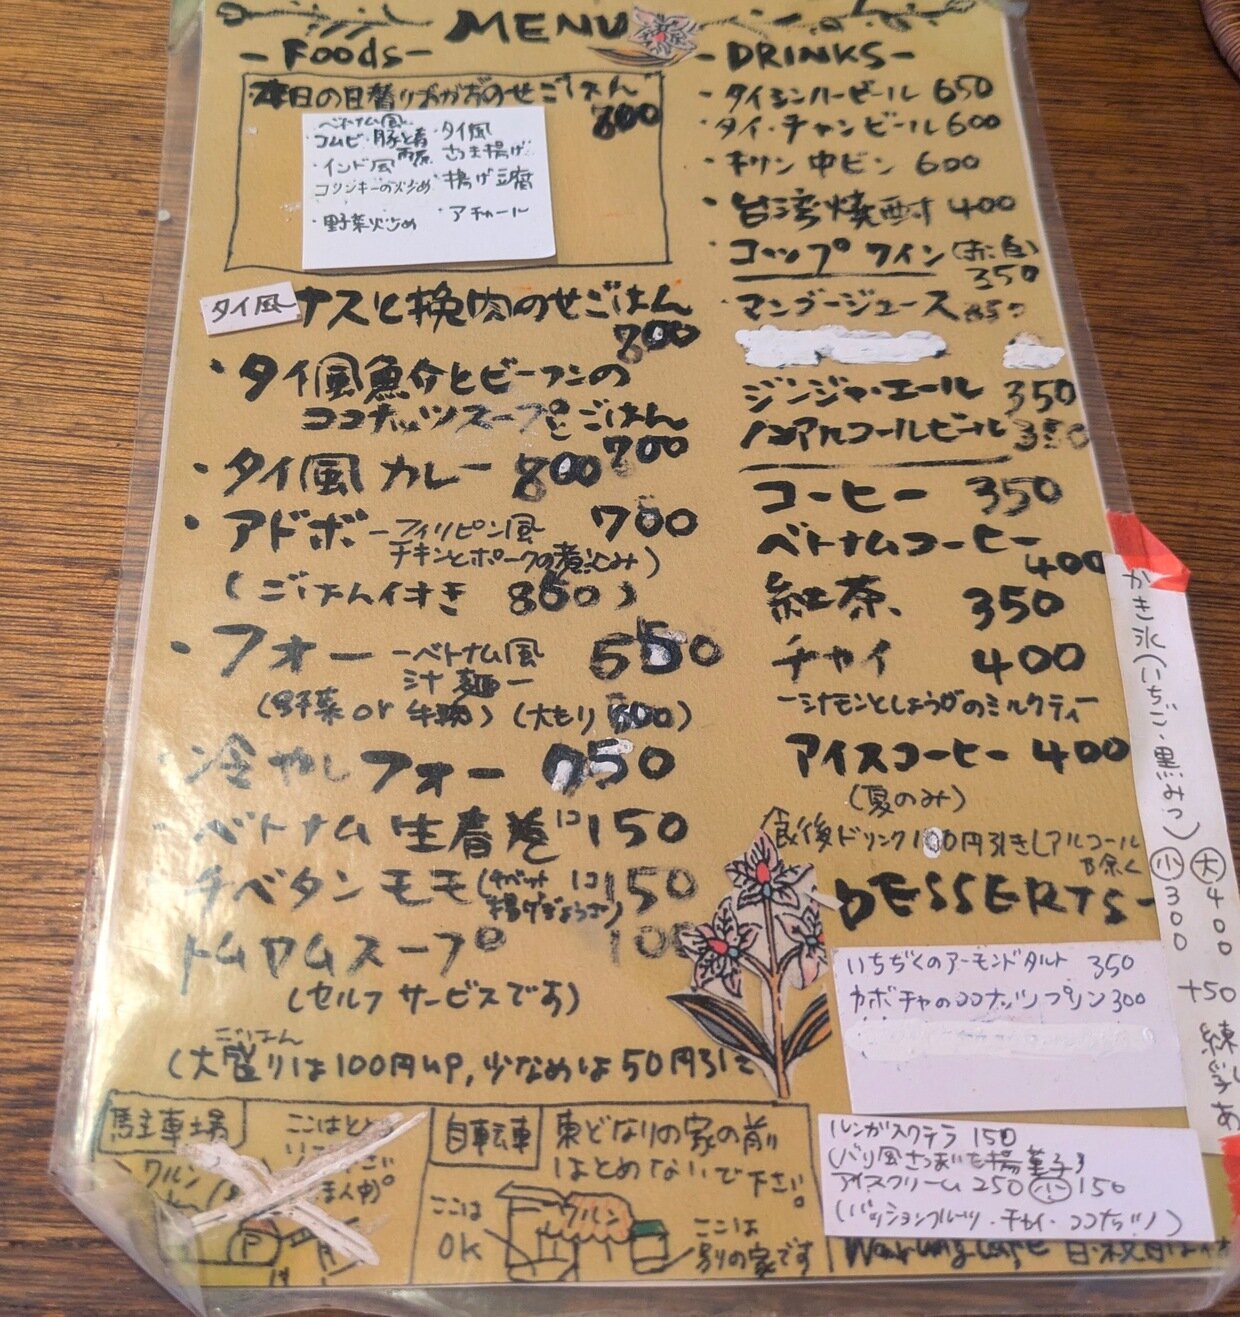 MENU
- Foods -
本日の日替りおかずのせごはん
800
ベトナム風
コムビ・豚と春雨
インド風
コリンキーの炒め
・野菜炒め
・タイ風
さつま揚げ
・揚げ豆腐
・アチャール
タイ風 ナスと挽肉のせごはん
700
・タイ風魚介とビーフンの
ココナッツスープとごはん
700
・タイ風カレー 800
・アドボ -フィリピン風 700
チキンとポークの煮込み)
(ごはん付き 860)
・フォー -ベトナム風 550
汁麺-
(野菜 or 牛肉) (大もり 600)
・冷やしフォー 750
・ベトナム生春巻 1コ 150
・チベタンモモ (チベット 1コ 150
揚げぎょうざ)
トムヤムスープ 100
(セルフサービスです)
ごはん
(大盛りは100円up, 少なめは50円引に
- DRINKS -
・タイシンハービール 650
・タイ・チャンビール 600
・キリン中ビン 600
・台湾焼酎 400
・コップワイン (赤・白)
350
・マンゴージュース 350
ジンジャ・エール 350
ノンアルコールビール 350
コーヒー 350
ベトナムコーヒー
400
紅茶、 350
チャイ 400
-シナモンとしょうがのミルクティー
アイスコーヒー 400
(夏のみ)
食後ドリンク100円引き(アルコール
除く
DESSERTS-
いちぢくのアーモンドタルト 350
カボチャのココナッツプリン 300
ルンガスクテラ 150
(バリ風さつまいも揚菓子)
アイスクリーム 250 小 150
(パッションフルーツ・チャイ・ココナッツ)
かき氷(いちご・黒みつ)
大 400
小 300
+50
練
あ
駐車場
ここは
自転車
東どなりの家の前
はとめないで下さい。
ここは
OK
ここは
別の家です